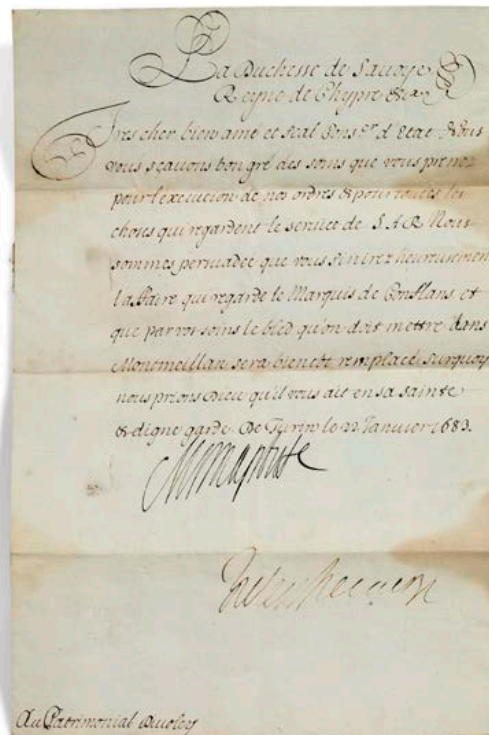 La Duchesse de Savoye
Reyne de Chypre &ca
Tres cher bien amé et feal Cons.er d'Etat. Nous
vous sçavons bon gré des soins que vous prenez
pour l'execucion de nos ordres & pour toutes les
choses qui regardent le service de S. A. R. Nous
sommes persuadée que vous finirez heureusement
l'affaire qui regarde le Marquis de Conflans et
que par vos soins le bled qu'on doit mettre dans
Montmeillan sera bientôt remplacé surquoy
nous prions Dieu qu'il vous ait en sa sainte
& digne garde. De Turin le 22 Janvier 1683.
Au Patrimonial